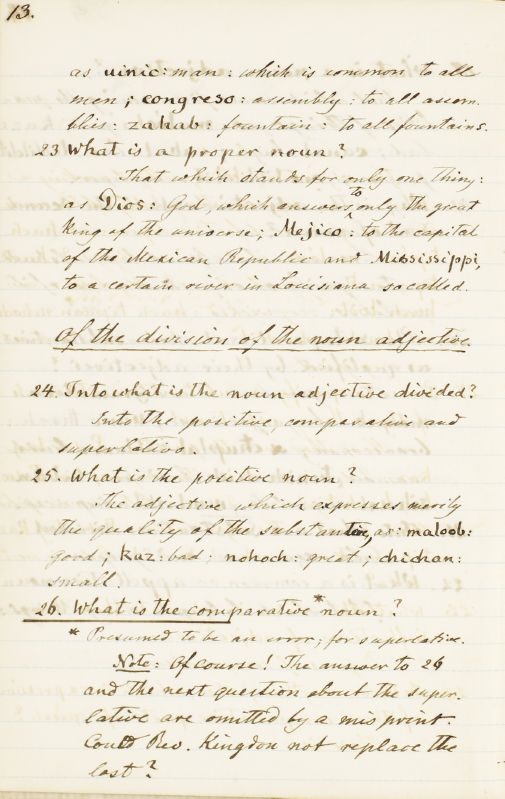 13.
as uinic: man: which is common to all
men; congreso: assembly: to all assem-
blies: zahab: fountain: to all fountains.
23. What is a proper noun?
That which stands for only one thing:
as Dios: God, which answers to only the great
King of the universe; Mejico: to the capital
of the Mexican Republic and Mississippi,
to a certain river in Louisiana so called.
Of the division of the noun adjective
24. Into what is the noun adjective divided?
Into the positive, comparative and
superlative.
25. What is the positive noun?
The adjective which expresses merily
the quality of the substantive, as: maloob:
good; kaz: bad; nohoch: great; chichan:
small.
26. What is the comparative * noun?
* Presumed to be an error; for superlative.
Note: Of course! The answer to 26
and the next question about the super-
lative are omitted by a mis print.
Could Rev. Kingdon not replace the
last?